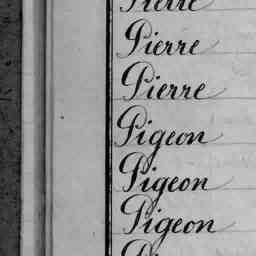 Pierre
Pierre
Pierre
Pigeon
Pigeon
Pigeon